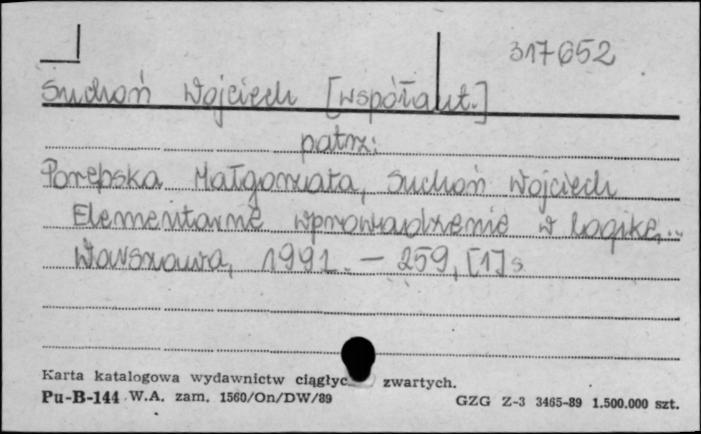 317652
Suchoń Wojciech [współaut.]
patrz:
Porębska Małgorzata, Suchoń Wojciech
Elementarne wprowadzenie w logikę...
Warszawa, 1991. – 259, [1] s
Karta katalogowa wydawnictw ciągłyc zwartych.
Pu-B-144 W.A. zam. 1560/On/DW/89 GZG Z-3 3465-89 1.500.000 szt.